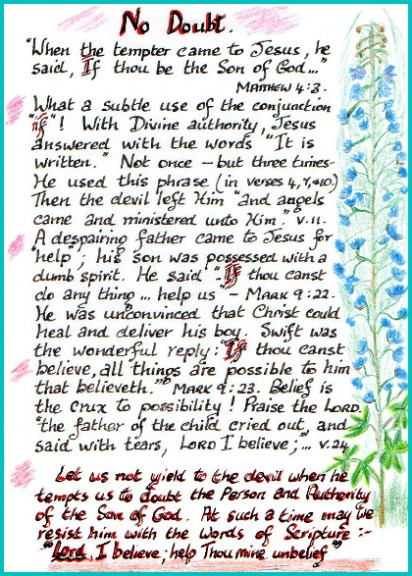 No Doubt.
"When the tempter came to Jesus, he
said, If thou be the Son of God..."
Matthew 4:3.
What a subtle use of the conjunction
"if"! With Divine authority, Jesus
answered with the words "It is
written." Not once – but three times-
He used this phrase (in verses 4, 7, &10.)
Then the devil left Him "and angels
came and ministered unto Him." v.11.
A despairing father came to Jesus for
"help"; his son was possessed with a
dumb spirit. He said "If thou canst
do any thing... help us – Mark 9:22.
He was unconvinced that Christ could
heal and deliver his boy. Swift was
the wonderful reply: "If thou canst
believe, all things are possible to him
that believeth." Mark 9:23. Belief is
the crux to possibility! Praise the Lord.
"the father of the child cried out, and
said with tears, Lord I believe;"... v.24
Let us not yield to the devil when he
tempts us to doubt the Person and Authority
of the Son of God. At such a time may we
resist him with the words of Scripture :-
"Lord, I believe; help Thou mine unbelief"